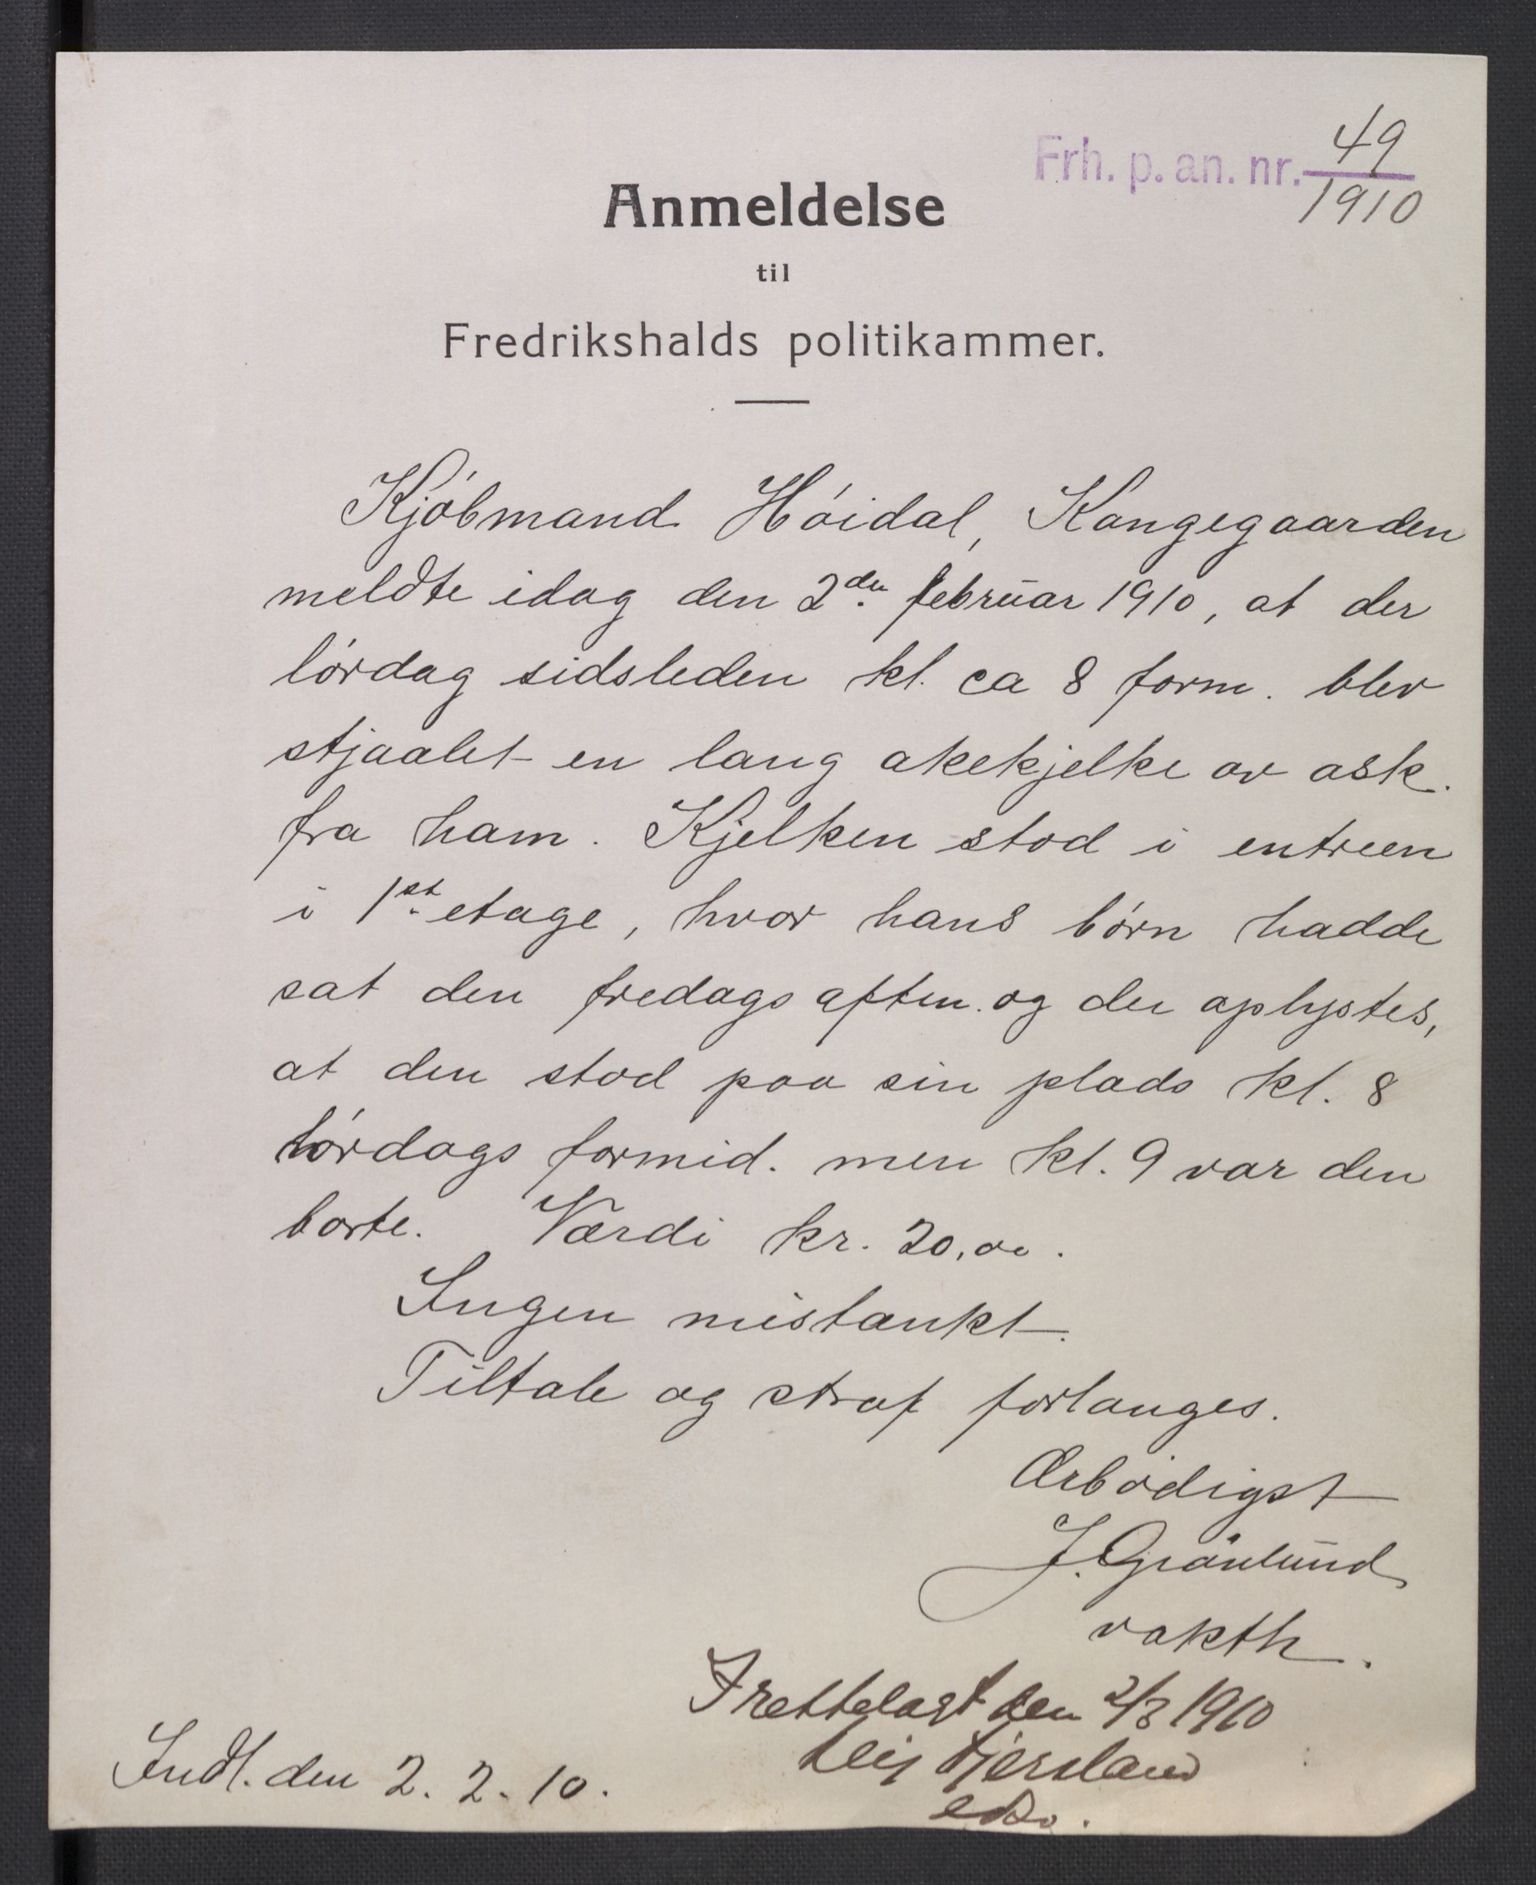 Frh. p. an. nr. 49
1910
Anmeldelse
til
Fredrikshalds politikammer.
Kjóbmand Hóidal, Kongegaarden
meldte idag den 2den februar 1910, at der
lórdag sidsleden kl. ca 8 form. blev
stjaalet en lang akekjelke av ask.
fra ham. Kjelken stod i entreen
i 1st etage, hvor hans børn hadde
sat den fredags aften. og der oplystes,
at den stod paa sin plads kl. 8
lórdags formid. men kl. 9 var den
borte. Værdi kr. 20,00.
Ingen mistænkt.
Tiltale og straf forlanges.
Ærbødigst
J. Grönlund
vakth.
I rettelagt den 2/3 1910
Leif
Indl. den 2. 2. 10.